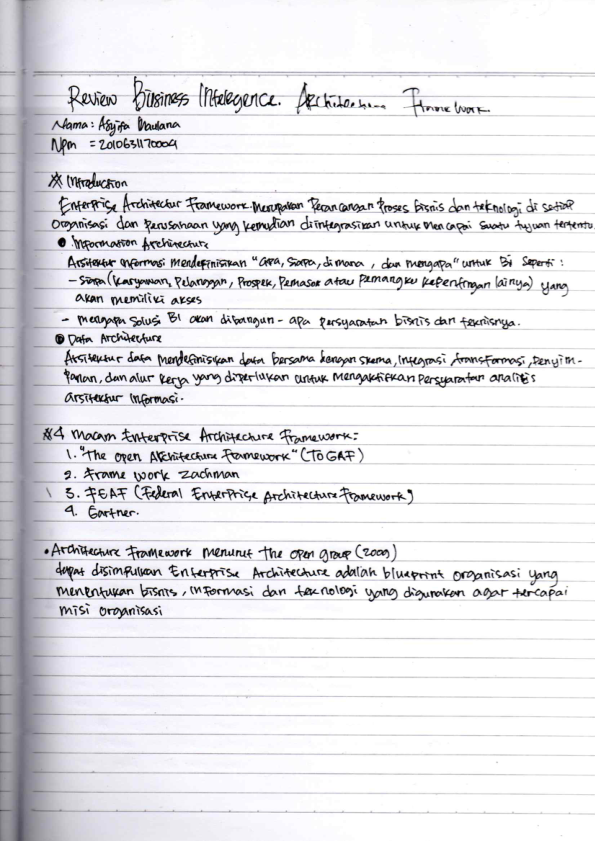 Review Business Intelegence. Architecture Framework.
Nama : Asyifa Maulana
Npm = 2010631170004
* Introduction
Enterprise Architectur Framework. Merupakan Perancangan Proses bisnis dan teknologi di setiap
organisasi dan perusahaan yang kemudian diintegrasikan untuk mencapai suatu tujuan tertentu.
• Information Architecture
Arsitektur informasi mendefinisikan "apa, siapa, dimana, dan mengapa" untuk BI seperti :
- Siapa (karyawan, Pelanggan, Prospek, Pemasok atau pemangku kepentingan lainya) yang
akan memiliki akses
- mengapa solusi BI akan dibangun - apa persyaratan bisnis dan teknisnya.
• Data Architecture
Arsitektur data mendefinisikan data bersama dengan skema, integrasi, transformasi, penyim-
panan, dan alur kerja yang diperlukan untuk mengaktifkan persyaratan analitis
arsitektur informasi.
* 4 macam Enterprise Architecture Framework :
1. "The open Architecture Framework" (TOGAF)
2. Frame work zachman
3. FEAF (Federal Enterprise Architecture Framework)
4. Gartner.
• Architecture Framework menurut the open group (2009)
dapat disimpulkan Enterprise Architecture adalah blueprint organisasi yang
menentukan bisnis, informasi dan teknologi yang digunakan agar tercapai
misi organisasi